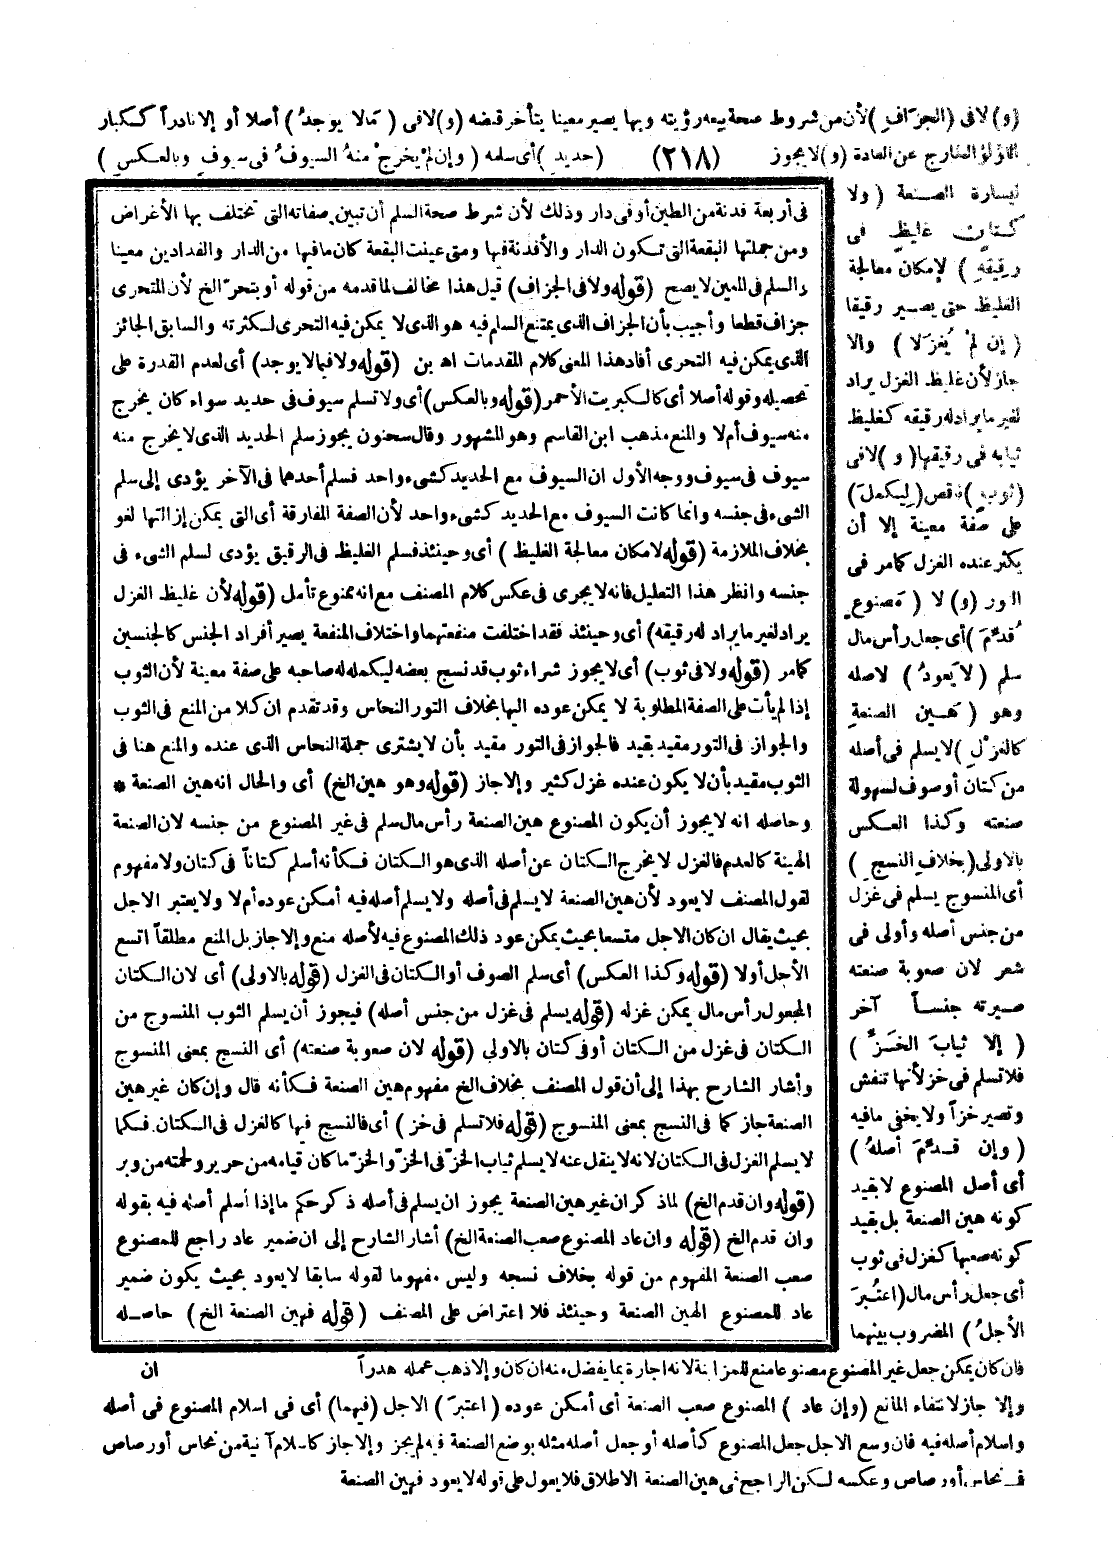 (و) لا فى (الجزاف) لأن من شروط صحة بيعه رؤيته وبها يصير معينا يتأخر قبضه (و) لا فى (ما لا يوجد) أصلا أو إلا نادراً ككبار
اللؤلؤ الخارج عن العادة (و) لا يجوز (٢١٨) (حديد) أى سلمه (وإن لم يخرج منه السيوف فى سيوف وبالعكس)
ليسارة الصنعة (ولا
كتان غليظ فى
رقيقه) لإمكان معالجة
الغليظ حتى يصير رقيقا
(إن لم يغزلا) والا
جاز لأن غليظ الغزل يراد
لغير ما يراد له رقيقه كغليظ
ثيابه فى رقيقها (و) لا فى
(ثوب) ناقص (ليكمل)
على صفة معينة إلا أن
يكثر عنده الغزل كما مر فى
التور (و) لا (مصنوع
قدم) أى جعل رأس مال
سلم (لا يعود) لاصله
وهو (هين الصنعة
كالغزل) لا يسلم فى أصله
من كتان أو صوف لسهولة
صنعته وكذا العكس
بالاولى (بخلاف النسج)
أى المنسوج يسلم فى غزل
من جنس أصله وأولى فى
شعر لان صعوبة صنعته
صيرته جنساً آخر
(إلا ثياب الخز)
فلا تسلم فى خز لأنها تنفش
وتصير خزاً ولا يخفى ما فيه
(وإن قدم أصله)
أى أصل المصنوع لا بقيد
كونه هين الصنعة بل بقيد
كونه صعبها كغزل فى ثوب
أى جعل رأس مال (اعتبر
الأجل) المضروب بينهما
فى أربعة فدنة من الطين أو فى دار وذلك لأن شرط صحة السلم أن تبين صفاته التى تختلف بها الأغراض
ومن جملتها البقعة التى تكون الدار والأفدنة فيها ومتى عينت البقعة كان ما فيها من الدار والفدادين معينا
والسلم فى المعين لا يصح (قوله ولا فى الجزاف) قيل هذا مخالف لما قدمه من قوله أو بتحر الخ لأن المتحرى
جزاف قطعا وأجيب بأن الجزاف الذى يمتنع السلم فيه هو الذى لا يمكن فيه التحرى لكثرته والسابق الجائز
الذى يمكن فيه التحرى أفاد هذا المعنى كلام المقدمات اه بن (قوله ولا فيما لا يوجد) أى لعدم القدرة على
تحصيله وقوله أصلا أى كالكبريت الأحمر (قوله وبالعكس) أى ولا تسلم سيوف فى حديد سواء كان يخرج
منه سيوف أم لا والمنع مذهب ابن القاسم وهو المشهور وقال سحنون يجوز سلم الحديد الذى لا يخرج منه
سيوف فى سيوف ووجه الأول ان السيوف مع الحديد كشىء واحد فسلم أحدهما فى الآخر يؤدى إلى سلم
الشىء فى جنسه وانما كانت السيوف مع الحديد كشىء واحد لأن الصفة المفارقة أى التى يمكن إزالتها لغو
بخلاف الملازمة (قوله لامكان معالجة الغليظ) أى وحينئذ فسلم الغليظ فى الرقيق يؤدى لسلم الشىء فى
جنسه وانظر هذا التعليل فانه لا يجرى فى عكس كلام المصنف مع انه ممنوع تأمل (قوله لأن غليظ الغزل
يراد لغير ما يراد له رقيقه) أى وحينئذ فقد اختلفت منفعتهما واختلاف المنفعة يصير أفراد الجنس كالجنسين
كما مر (قوله ولا فى ثوب) أى لا يجوز شراء ثوب قد نسج بعضه ليكمله له صاحبه على صفة معينة لأن الثوب
إذا لم يأت على الصفة المطلوبة لا يمكن عوده اليها بخلاف التور النحاس وقد تقدم ان كلا من المنع فى الثوب
والجواز فى التور مقيد بقيد فالجواز فى التور مقيد بأن لا يشترى جملة النحاس الذى عنده والمنع هنا فى
الثوب مقيد بأن لا يكون عنده غزل كثير وإلا جاز (قوله وهو هين الخ) أى والحال انه هين الصنعة *
وحاصله انه لا يجوز أن يكون المصنوع هين الصنعة رأس مال سلم فى غير المصنوع من جنسه لان الصنعة
الهينة كالعدم فالغزل لا يخرج الكتان عن أصله الذى هو الكتان فكأنه أسلم كتاناً فى كتان ولا مفهوم
لقول المصنف لا يعود لأن هين الصنعة لا يسلم فى أصله ولا يسلم أصله فيه أمكن عوده أم لا ولا يعتبر الاجل
بحيث يقال ان كان الاجل متسعا بحيث يمكن عود ذلك المصنوع فيه لأصله منع وإلا جاز بل المنع مطلقاً اتسع
الأجل أولا (قوله وكذا العكس) أى سلم الصوف أو الكتان فى الغزل (قوله بالاولى) أى لان الكتان
المجعول رأس مال يمكن غزله (قوله يسلم فى غزل من جنس أصله) فيجوز أن يسلم الثوب المنسوج من
الكتان فى غزل من الكتان أو فى كتان بالاولي (قوله لان صعوبة صنعته) أى النسج بمعنى المنسوج
وأشار الشارح بهذا إلى أن قول المصنف بخلاف الخ مفهوم هين الصنعة فكأنه قال وإن كان غير هين
الصنعة جاز كما فى النسج بمعنى المنسوج (قوله فلا تسلم فى خز) أى فالنسج فيها كالغزل فى الكتان فكما
لا يسلم الغزل فى الكتان لانه لا ينقل عنه لا يسلم ثياب الخز فى الخز والخز ما كان قيامه من حرير ولحمته من وبر
(قوله وان قدم الخ) لما ذكر ان غير هين الصنعة يجوز ان يسلم فى أصله ذكر حكم ما إذا أسلم أصله فيه بقوله
وان قدم الخ (قوله وان عاد المصنوع صعب الصنعة الخ) أشار الشارح إلى ان ضمير عاد راجع للمصنوع
صعب الصنعة المفهوم من قوله بخلاف نسجه وليس مفهوما لقوله سابقا لا يعود بحيث يكون ضمير
عاد للمصنوع الهين الصنعة وحينئذ فلا اعتراض على المصنف (قوله فهين الصنعة الخ) حاصله
فان كان يمكن جعل غير المصنوع مصنوعا منع للمزابنة لانه اجارة بما يفضل منه ان كان وإلا ذهب عمله هدراً ان
وإلا جاز لانتفاء المانع (وإن عاد) المصنوع صعب الصنعة أى أمكن عوده (اعتبر) الاجل (فيهما) أى فى اسلام المصنوع فى أصله
واسلام أصله فيه فان وسع الاجل جعل المصنوع كأصله أو جعل أصله مثله بوضع الصنعة فيه لم يجز وإلا جاز كاسلام آنية من نحاس أو رصاص
فى نحاس أو رصاص وعكسه لكن الراجح فى هين الصنعة الاطلاق فلا يعول على قوله لا يعود فهين الصنعة